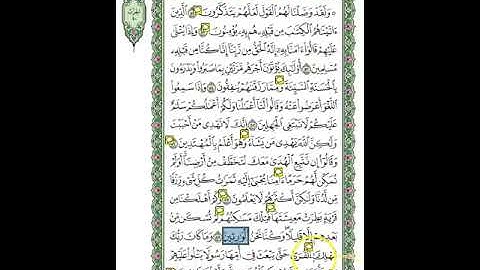 ۞ وَلَقَدْ وَصَّلْنَا لَهُمُ ٱلْقَوْلَ لَعَلَّهُمْ يَتَذَكَّرُونَ ٥١ ٱلَّذِينَ
ءَاتَيْنَٰهُمُ ٱلْكِتَٰبَ مِن قَبْلِهِۦ هُم بِهِۦ يُؤْمِنُونَ ٥٢ وَإِذَا يُتْلَىٰ
عَلَيْهِمْ قَالُوٓا۟ ءَامَنَّا بِهِۦٓ إِنَّهُ ٱلْحَقُّ مِن رَّبِّنَآ إِنَّا كُنَّا مِن قَبْلِهِۦ
مُسْلِمِينَ ٥٣ أُو۟لَٰٓئِكَ يُؤْتَوْنَ أَجْرَهُم مَّرَّتَيْنِ بِمَا صَبَرُوا۟ وَيَدْرَءُونَ
بِٱلْحَسَنَةِ ٱلسَّيِّئَةَ وَمِمَّا رَزَقْنَٰهُمْ يُنفِقُونَ ٥٤ وَإِذَا سَمِعُوا۟
ٱللَّغْوَ أَعْرَضُوا۟ عَنْهُ وَقَالُوا۟ لَنَآ أَعْمَٰلُنَا وَلَكُمْ أَعْمَٰلُكُمْ سَلَٰمٌ
عَلَيْكُمْ لَا نَبْتَغِى ٱلْجَٰهِلِينَ ٥٥ إِنَّكَ لَا تَهْدِى مَنْ أَحْبَبْتَ
وَلَٰكِنَّ ٱللَّهَ يَهْدِى مَن يَشَآءُ وَهُوَ أَعْلَمُ بِٱلْمُهْتَدِينَ ٥٦
وَقَالُوٓا۟ إِن نَّتَّبِعِ ٱلْهُدَىٰ مَعَكَ نُتَخَطَّفْ مِنْ أَرْضِنَآ أَوَلَمْ
نُمَكِّن لَّهُمْ حَرَمًا ءَامِنًا يُجْبَىٰٓ إِلَيْهِ ثَمَرَٰتُ كُلِّ شَىْءٍ رِّزْقًا
مِّن لَّدُنَّا وَلَٰكِنَّ أَكْثَرَهُمْ لَا يَعْلَمُونَ ٥٧ وَكَمْ أَهْلَكْنَا مِن
قَرْيَةٍۭ بَطِرَتْ مَعِيشَتَهَا فَتِلْكَ مَسَٰكِنُهُمْ لَمْ تُسْكَن مِّنۢ
بَعْدِهِمْ إِلَّا قَلِيلًا وَكُنَّا نَحْنُ ٱلْوَٰرِثِينَ ٥٨ وَمَا كَانَ رَبُّكَ
مُهْلِكَ ٱلْقُرَىٰ حَتَّىٰ يَبْعَثَ فِىٓ أُمِّهَا رَسُولًا يَتْلُوا۟ عَلَيْهِمْ